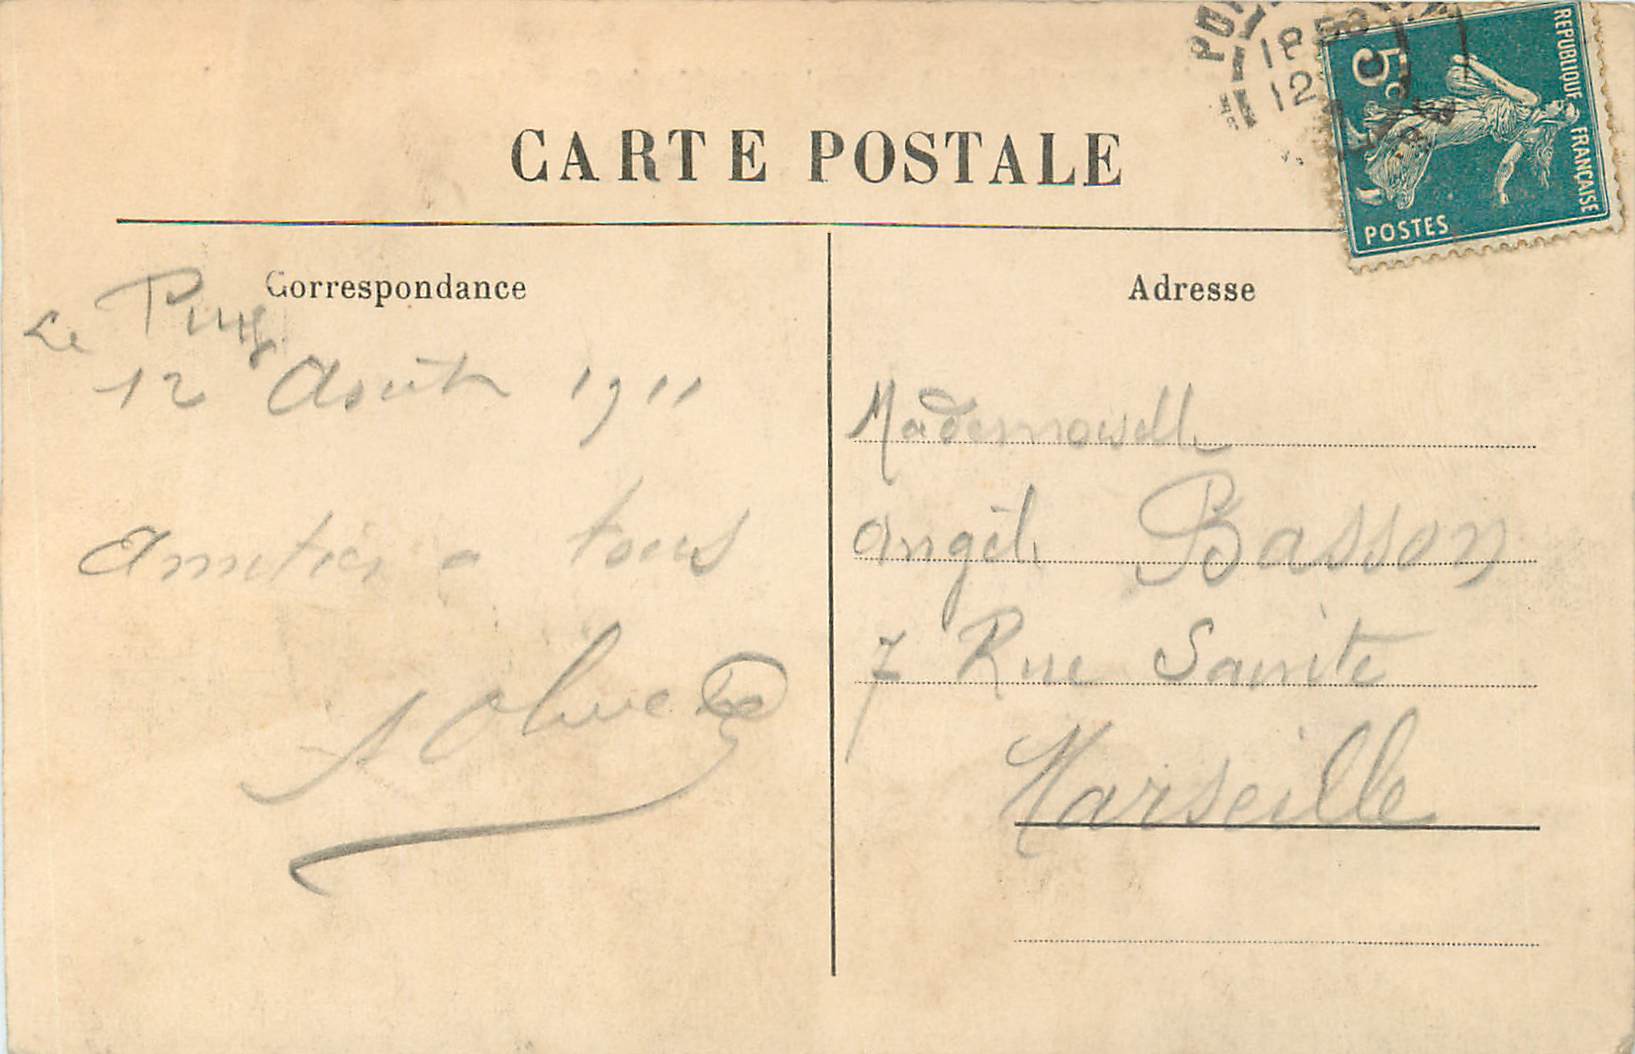 CARTE POSTALE
REPUBLIQUE FRANÇAISE
5c
POSTES
18 50
12
Correspondance
Le Puy
12 Août 1911
Amitiés a tous
Adresse
Mademoiselle
Angèle Basson
7 Rue Sainte
Marseille